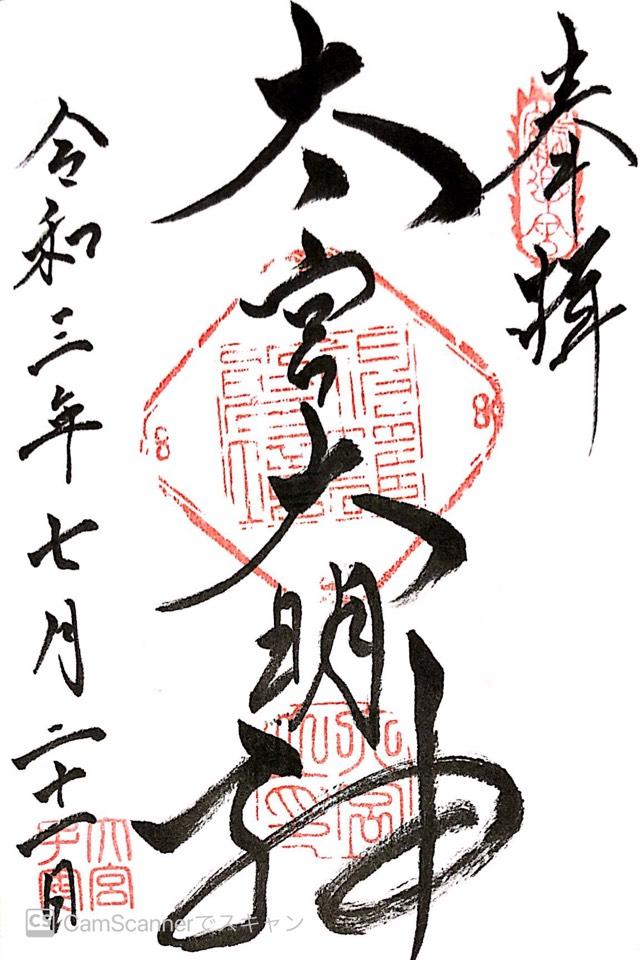 奉拝
太宮大明神
令和三年七月二十一日
CamScannerでスキャン